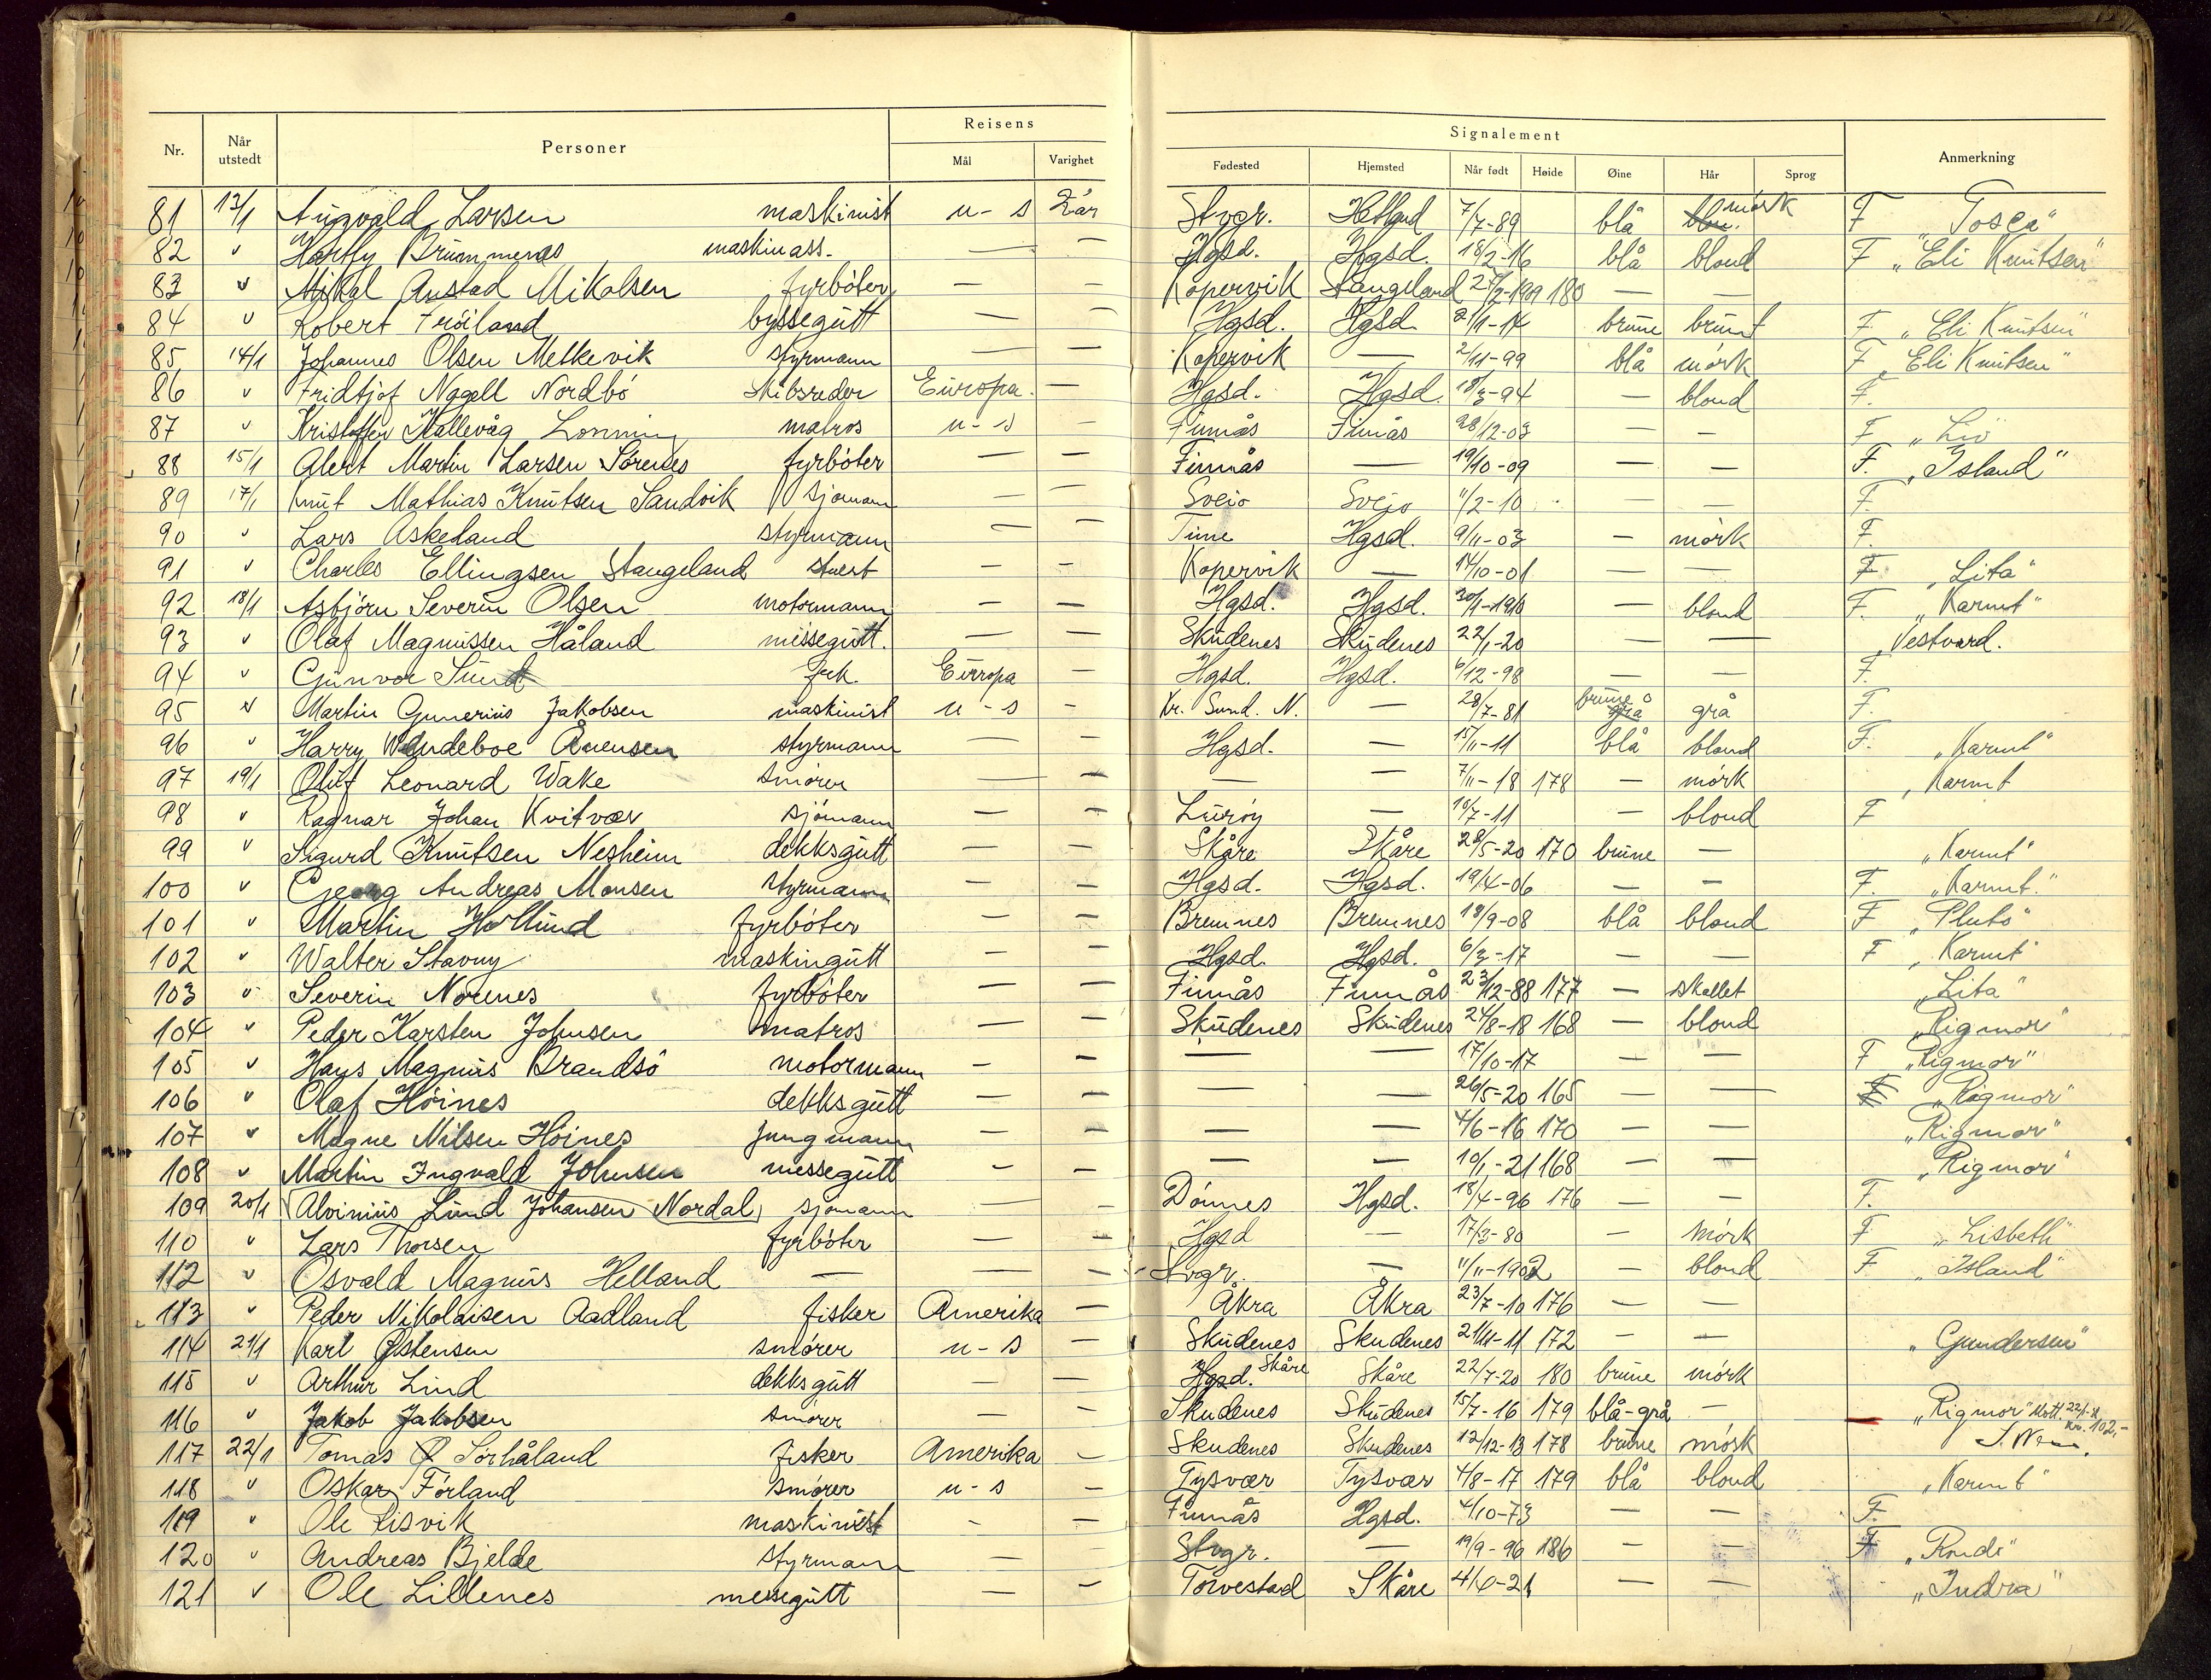 Nr. Når utstedt Personer Reisens Mål Varighet Signalement Fødested Hjemsted Når født Høide Øine Hår Sprog Anmerkning
81 13/1 Augvald Larsen maskinist u-s 2 år Stvgr. Hetland 7/7-89 blå mörk F „Tosca"
82 " Brummenæs maskinass. — — Hgsd. Hgsd. 18/2-16 blå blond F „Eli Knutsen"
83 " Mikal Austad Mikalsen fyrböter — — Kopervik Stangeland 27/2-1909 180 — —
84 " Robert Tröiland byssegutt — — Hgsd. Hgsd. 2/1-14 brune brunt F. „Eli Knutsen"
85 14/1 Johannes Olsen Melkevik styrmann — — Kopervik — 2/11-99 blå mörk F „Eli Knutsen"
86 " Fridtjof Nagell Nordbö skibsreder Europa. — Hgsd. Hgsd. 18/3-94 — blond F.
87 " Kristoffer Hallevåg Lönning matros u-s — Finnås Finnås 28/12-03 — — F „Liv"
88 15/1 Alert Martin Larsen Sörenes fyrböter — — Finnås — 19/10-09 — — F. „Island"
89 17/1 Knut Mathias Knutsen Sandvik sjömann — — Sveio Sveio 11/2-10 — — F.
90 " Lars Askeland styrmann — — Time Hgsd. 9/11-03 — mörk F.
91 " Charles Ellingsen Stangeland stuert — — Kopervik — 14/10-01 — — F. „Lita"
92 18/1 Asbjörn Severin Olsen motormann — — Hgsd. Hgsd. 30/1-1910 — blond F. „Karmt"
93 " Olaf Magnussen Håland missegutt. — — Skudenes Skudenes 22/1-20 — — „Vestvard.
94 " Gunvor Sund frk. Europa — Hgsd. Hgsd. 6/12-98 — — F.
95 " Martin Gunerius Jakobsen maskinist u-s — Kr. Sund. N. — 28/7-81 brune grå F.
96 " Harry styrmann — — Hgsd. — 15/11-11 blå blond F. „Karmt"
97 19/1 Oluf Leonard Wake smörer — — — — 7/11-18 178 — mörk „Karmt
98 " Ragnar Johan Kvitvær sjömann — — Luröy — 10/7-11 — blond F
99 " Sigurd Knutsen Nesheim dekksgutt — — Skåre Skåre 28/5-20 170 brune — „Karmt"
100 " Georg Andreas Monsen styrmann — — Hgsd. Hgsd. 19/4-06 — — F. „Karmt."
101 " Martin Hollund fyrböter — — Bremnes Bremnes 18/9-08 blå blond F „Pluto"
102 " Walter Stavny maskingutt — — Hgsd. Hgsd. 6/3-17 — — F „Karmt"
103 " Severin Norenes fyrböter — — Finnås Finnås 23/12-88 177 — skallet „Lita"
104 " Peder Karsten Johnsen matros — — Skudenes Skudenes 24/8-18 168 — blond „Rigmor"
105 " Hans Magnus Brandsö motormann — — — — 17/10-17 — — F „Rigmor"
106 " Olaf Höines dekksgutt — — — — 26/5-20 165 — — F „Rigmor"
107 " Magne Nilsen Höines jungmann — — — — 4/6-16 170 — — „Rigmor"
108 " Martin Ingvald Johnsen messegutt — — — — 10/1-21 168 — — „Rigmor"
109 20/1 Alvinius Lund Johansen Nordal sjömann — — Dönnes Hgsd. 18/4-96 176 — — F.
110 " Lars Thorsen fyrböter — — Hgsd — 17/3-80 — mörk F „Lisbeth"
112 " Osvald Magnus Helland — — — Stvgr. — 11/11-1902 — blond F „Island"
113 " Peder Nikolaisen Aadland fisker Amerika — Åkra Åkra 23/7-10 176 — —
114 21/1 Karl Østensen smörer u-s — Skudenes Skudenes 21/11-11 172 — — „Gundersen"
115 " Arthur Lind dekksgutt — — Hgsd. Skåre Skåre 22/7-20 180 brune mörk
116 " Jakob Jakobsen smörer — — Skudenes Skudenes 15/7-16 179 blå-grå — „Rigmor" Mott. kr. 102,-
117 22/1 Tomas Sörhåland fisker Amerika — Skudenes Skudenes 12/12-13 178 brune mörk
118 " Oskar Förland smörer u-s — Tysvær Tysvær 4/8-17 179 blå blond „Karmt"
119 " Ole Lisvik maskinist - — Finnås Hgsd. 4/10-73 — — F.
120 " Andreas Bjelde styrmann — — Stvgr. — 19/9-96 186 — — F
121 " Ole Lillenes messegutt — — Torvestad Skåre 4/10-21 — — „Indra"